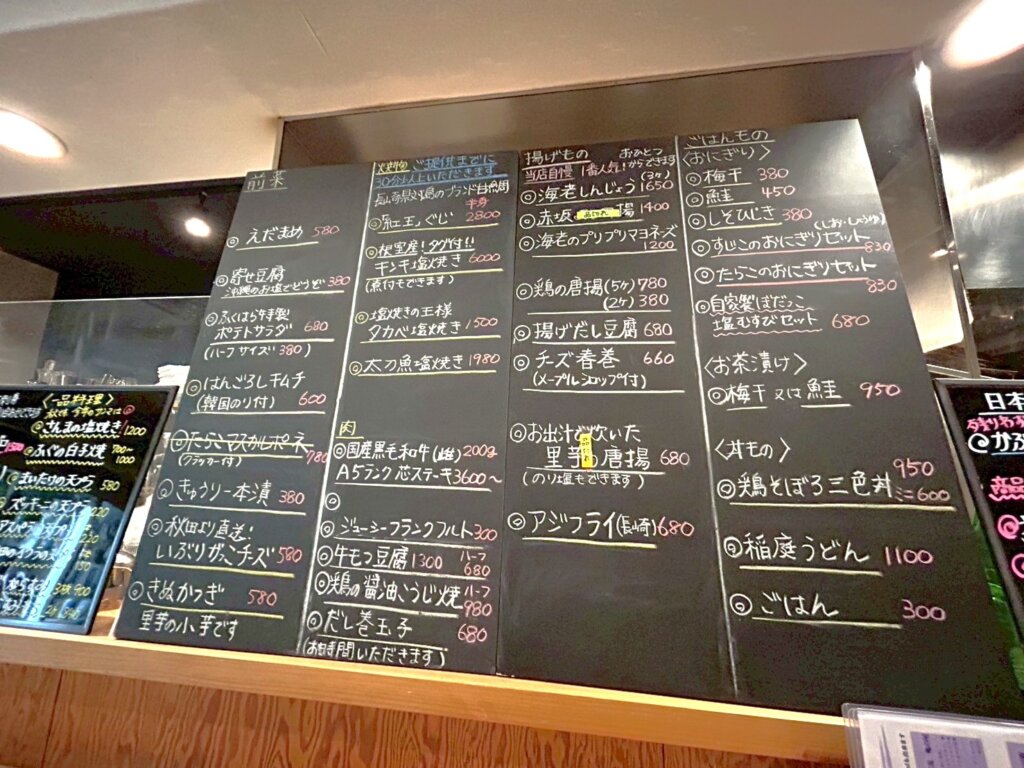 前菜
◎えだまめ 580
◎寄せ豆腐
沖縄のお塩でどうぞ 380
◎ふくはら特製
ポテトサラダ 680
(ハーフサイズ 380)
◎はんごろしキムチ
(韓国のり付) 600
◎たらこマスカルポーネ
(クラッカー付) 780
◎きゅうり一本漬 380
◎秋田より直送!
いぶりがっこチーズ 580
◎きぬかつぎ 580
里芋の小芋です
焼物 ご提供までに
30分以上いただきます
半身
◎「紅王」ぐじ 2800
◎根室産!タグ付!!
キンキ塩焼き 6000
(煮付もできます)
◎塩焼きの王様
タカベ塩焼き 1500
◎太刀魚塩焼き 1980
肉
◎国産黒毛和牛(雌)200g
A5ランク芯ステーキ3600〜
◎
◎ジューシーフランクフルト 300
◎牛もつ豆腐 1300 ハーフ 680
◎鶏の醤油こうじ焼 ハーフ 980
◎だし巻玉子 680
(お時間いただきます)
揚げもの おひとつからできます
当店自慢 1番人気!
◎海老しんじょう (3ヶ) 1650
◎赤坂 揚 1400
◎海老のプリプリマヨネーズ
1200
◎鶏の唐揚 (5ヶ) 780
(2ヶ) 380
◎揚げだし豆腐 680
◎チーズ春巻 660
(メープルシロップ付)
◎お出汁で炊いた
里芋の唐揚 680
(のり塩もできます)
◎アジフライ(長崎) 680
ごはんもの
〈おにぎり〉
◎梅干 380
◎鮭 450
◎しそひじき 380
(しお・しょうゆ)
◎すじこのおにぎりセット
830
◎たらこのおにぎりセット
830
◎自家製ぼだっこ
塩むすびセット 680
〈お茶漬け〉
◎梅干 又は 鮭 950
〈丼もの〉
◎鶏そぼろ三色丼 950
ミニ600
◎稲庭うどん 1100
◎ごはん 300
〈一品料理〉
◎さんまの塩焼き
1200
◎ふぐの白子焼 700〜
1000
◎まいたけの天ぷら
580
ズッキーニの天ぷら
220
日本